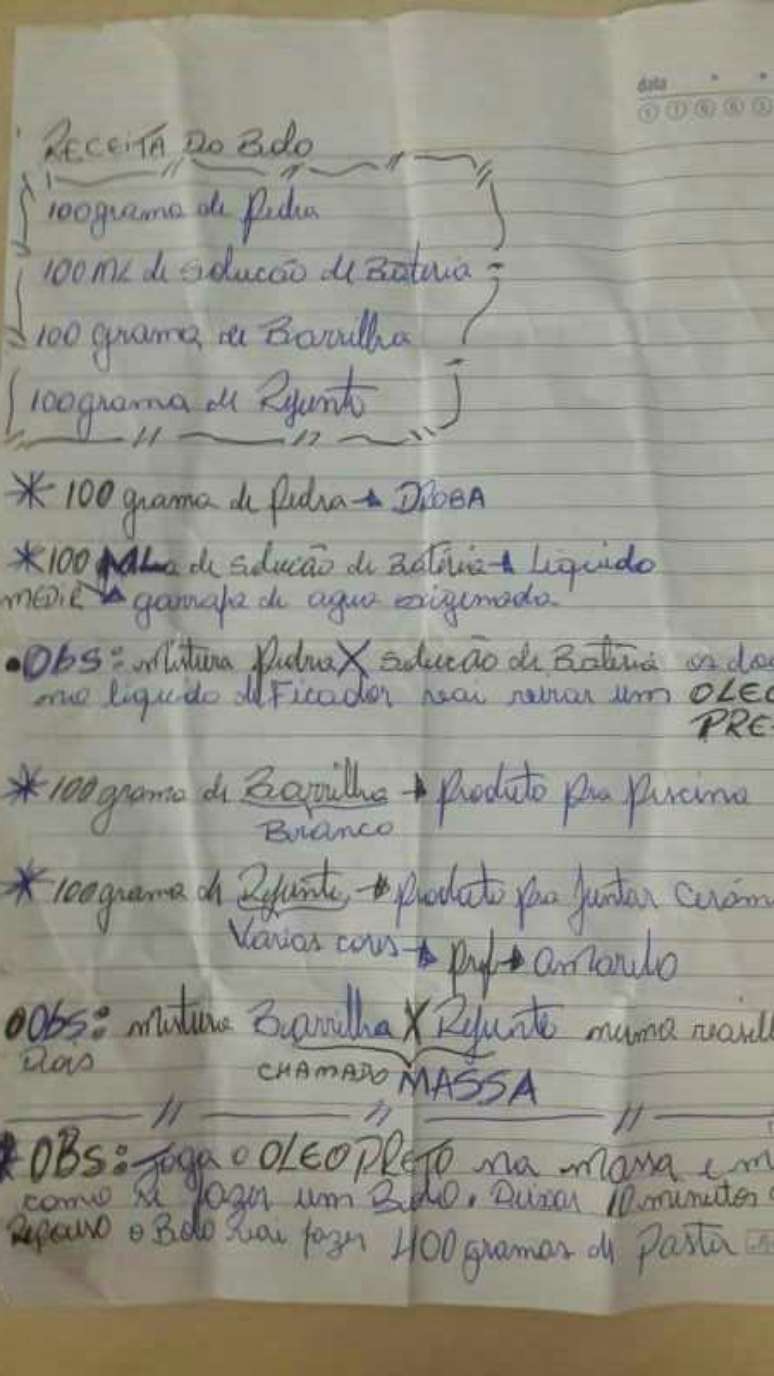 data
RECEITA DO BOLO
100 grama de Pedra
100 ML de solucão de Bateria
100 grama de Barrilha
100 grama de Rejunte
* 100 grama de Pedra → DROGA
* 100 de solucão de Bateria → Liquido
MEDIR → garrafa de agua oxigenada
• Obs: mistura Pedra X solucão de Bateria os
liquido um OLEO
* 100 grama de Barrilha → Produto pra Piscina
Branco
* 100 grama de Rejunte → Produto pra juntar
Varias cores → → amarelo
• Obs: mistura Barrilha X Rejunte numa
CHAMADO MASSA
* OBS: Joga o OLEO PRETO na massa e
como se fazer um Bolo. Deixar 10 minutos
Repouso o Bolo fazer 400 gramas de Pasta